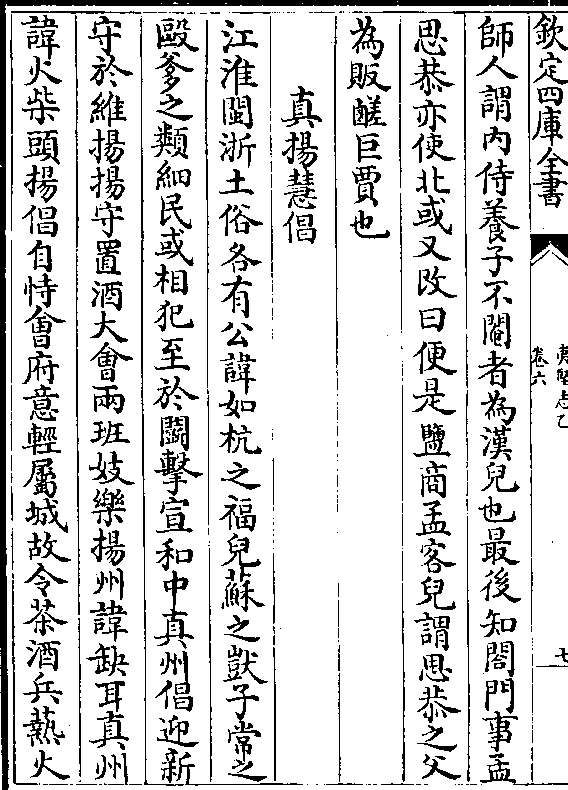 欽定四庫全書
夷堅志乙
卷六
七
師人謂内侍養子不閹者為漢兒也最後知閤門事孟
思恭亦使北或又改曰便是鹽商孟客兒謂思恭之父
為販醝巨賈也
真揚慧倡
江淮閩浙土俗各有公諱如杭之福兒蘇之獃子常之
毆爹之類細民或相犯至於鬬擊宣和中真州倡迎新
守於維揚揚守置酒大會兩班妓樂揚州諱缺耳真州
諱火柴頭揚倡自恃會府意輕屬城故令茶酒兵爇火